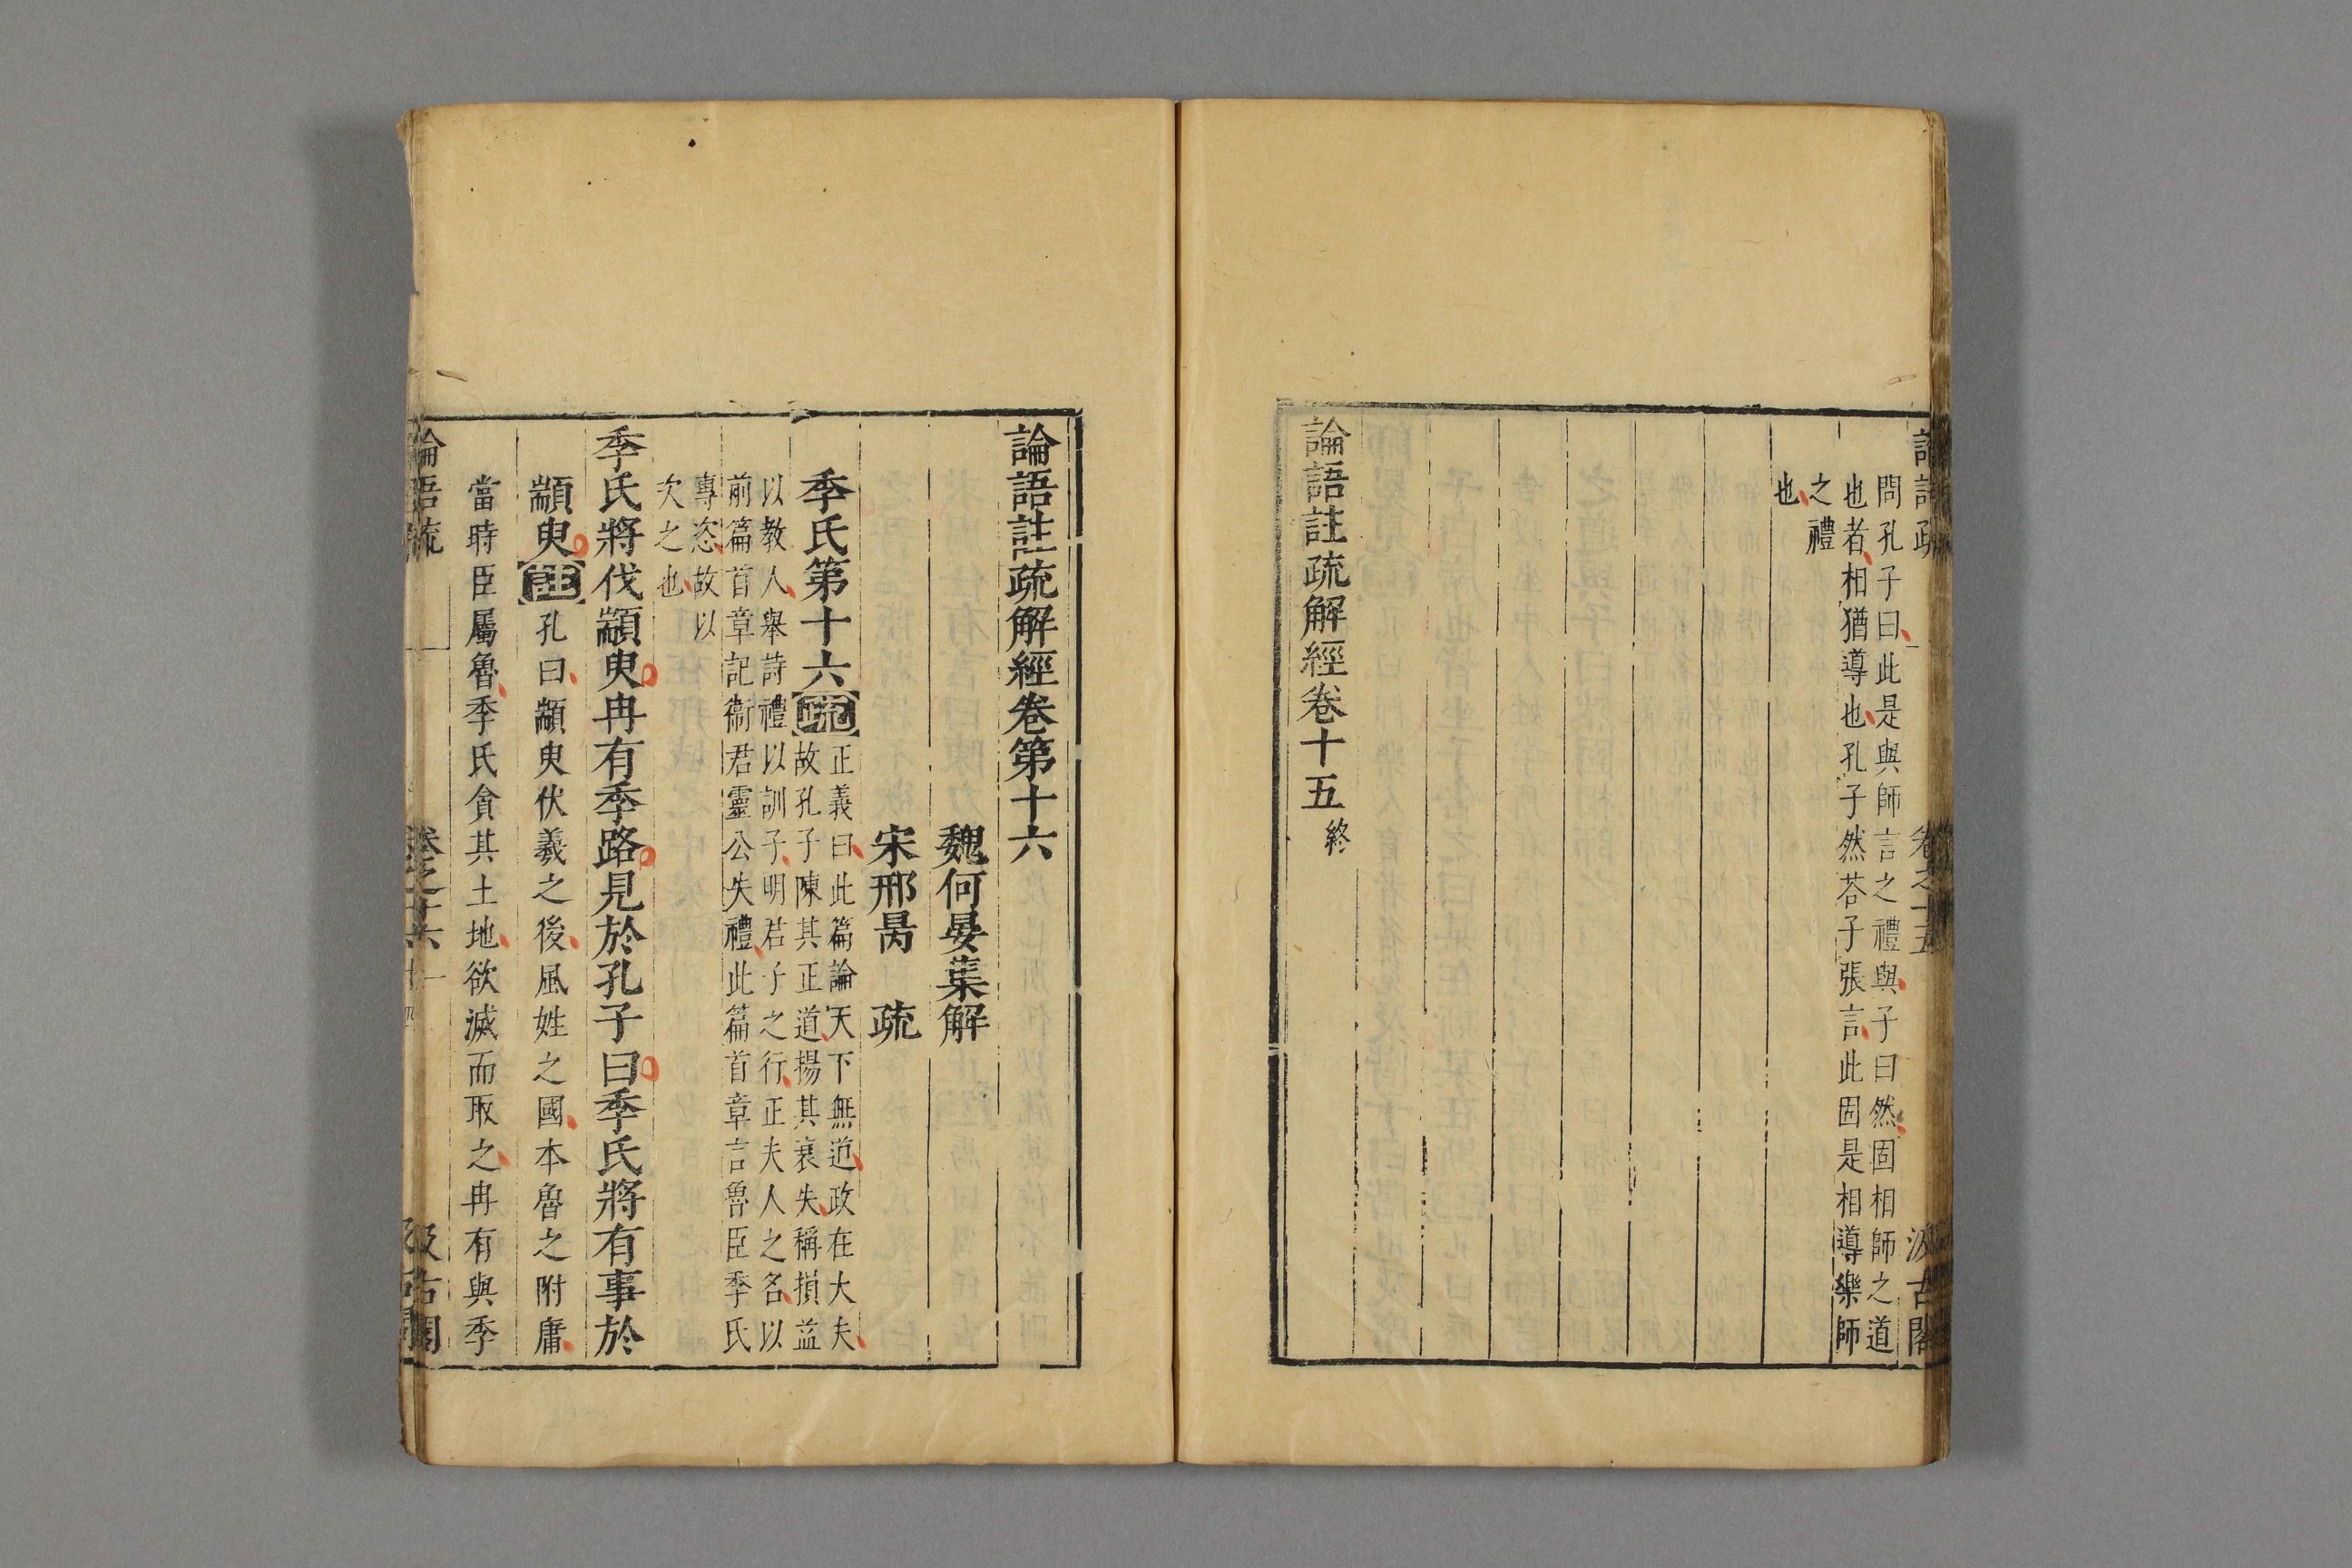 問孔子曰此是與師言之禮與子曰然固相師之道
也者相猶導也孔子然荅子張言此固是相導樂師
之禮
也
論語註疏解經卷十五終
卷之十五
汲古閣
論語註疏解經卷第十六
魏何晏集解
宋邢昺 疏
季氏第十六疏
正義曰此篇論天下無道政在大夫
故孔子陳其正道揚其衰失稱損益
以教人舉詩禮以訓子明君子之行正夫人之名以
前篇首章記衞君靈公失禮此篇首章言魯臣季氏
專恣故以
次之也
季氏將伐顓臾冉有季路見於孔子曰季氏將有事於
顓臾註孔曰顓臾伏羲之後風姓之國本魯之附庸
當時臣屬魯季氏貪其土地欲滅而取之冉有與季
論語疏
卷之十六
汲古閣